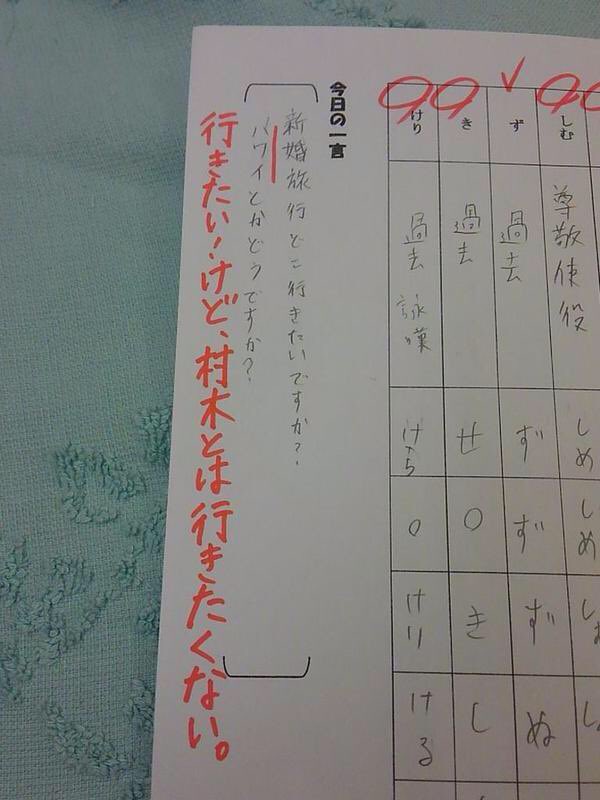 しむ
ず
き
けり
尊敬 使役
過去
過去
過去 詠嘆
しめ
ず
せ
けら
しめ
ず
○
○
ず
き
けり
ぬ
し
ける
今日の一言
新婚旅行どこ行きたいですか?
ハワイとかどうですか?
行きたい!けど、村木とは行きたくない。